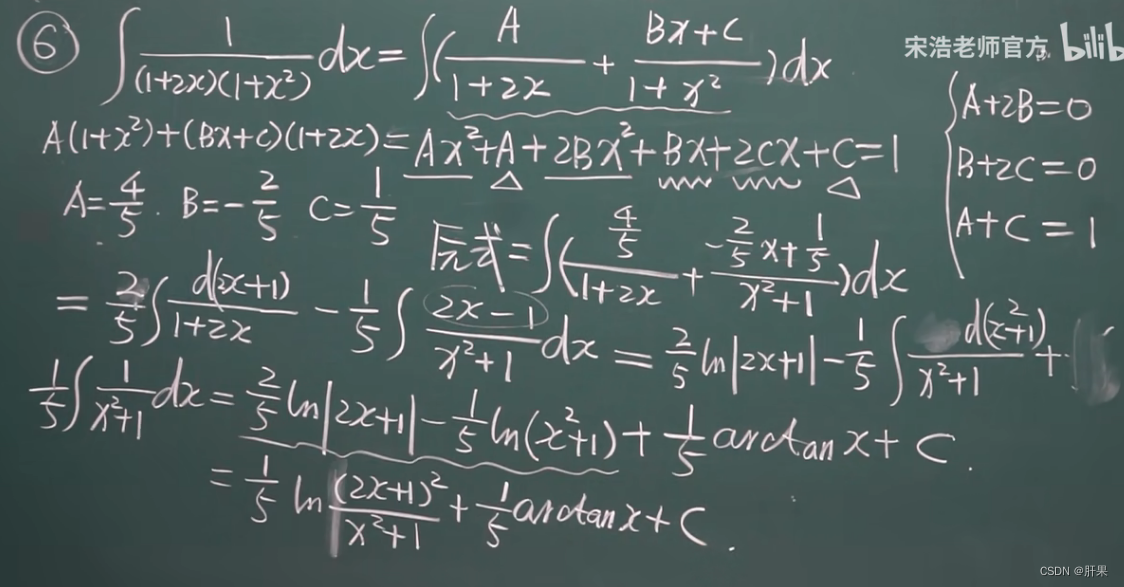 ⑥ ∫ 1/((1+2x)(1+x²)) dx = ∫( A/(1+2x) + (Bx+C)/(1+x²) )dx
宋浩老师官方 bilib
A(1+x²)+(Bx+C)(1+2x)=Ax²+A+2Bx²+Bx+2Cx+C=1
{ A+2B=0
B+2C=0
A+C=1
A=4/5. B=-2/5 C=1/5
原式=∫( (4/5)/(1+2x) + (-2/5 x+1/5)/(x²+1) )dx
= 2/5 ∫ d(2x+1)/(1+2x) - 1/5 ∫ (2x-1)/(x²+1) dx = 2/5 ln|2x+1| - 1/5 ∫ d(x²+1)/(x²+1) +
1/5 ∫ 1/(x²+1) dx = 2/5 ln|2x+1| - 1/5 ln(x²+1) + 1/5 arctan x + C.
= 1/5 ln (2x+1)²/(x²+1) + 1/5 arctan x + C.
CSDN @肝果